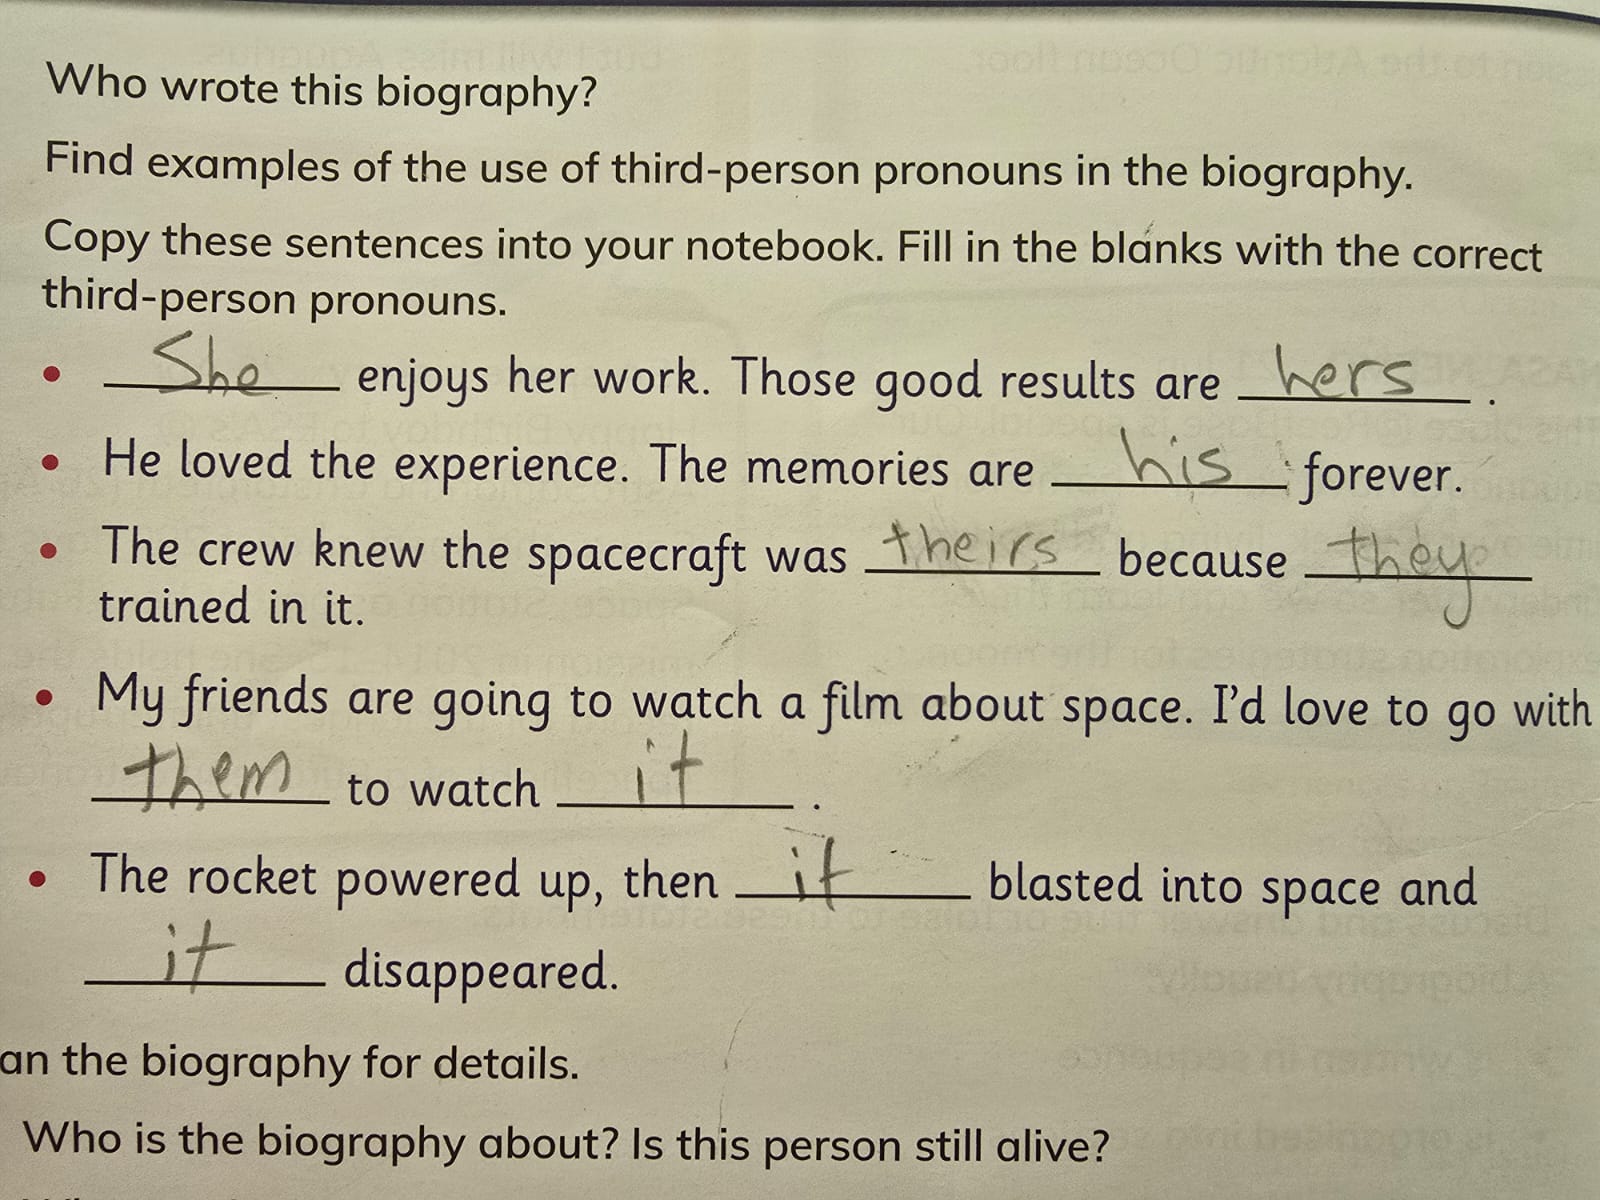 Who wrote this biography?
Find examples of the use of third-person pronouns in the biography.
Copy these sentences into your notebook. Fill in the blanks with the correct
third-person pronouns.
• She enjoys her work. Those good results are hers.
• He loved the experience. The memories are his forever.
• The crew knew the spacecraft was theirs because they
trained in it.
• My friends are going to watch a film about space. I'd love to go with
them to watch it.
• The rocket powered up, then it blasted into space and
it disappeared.
an the biography for details.
Who is the biography about? Is this person still alive?